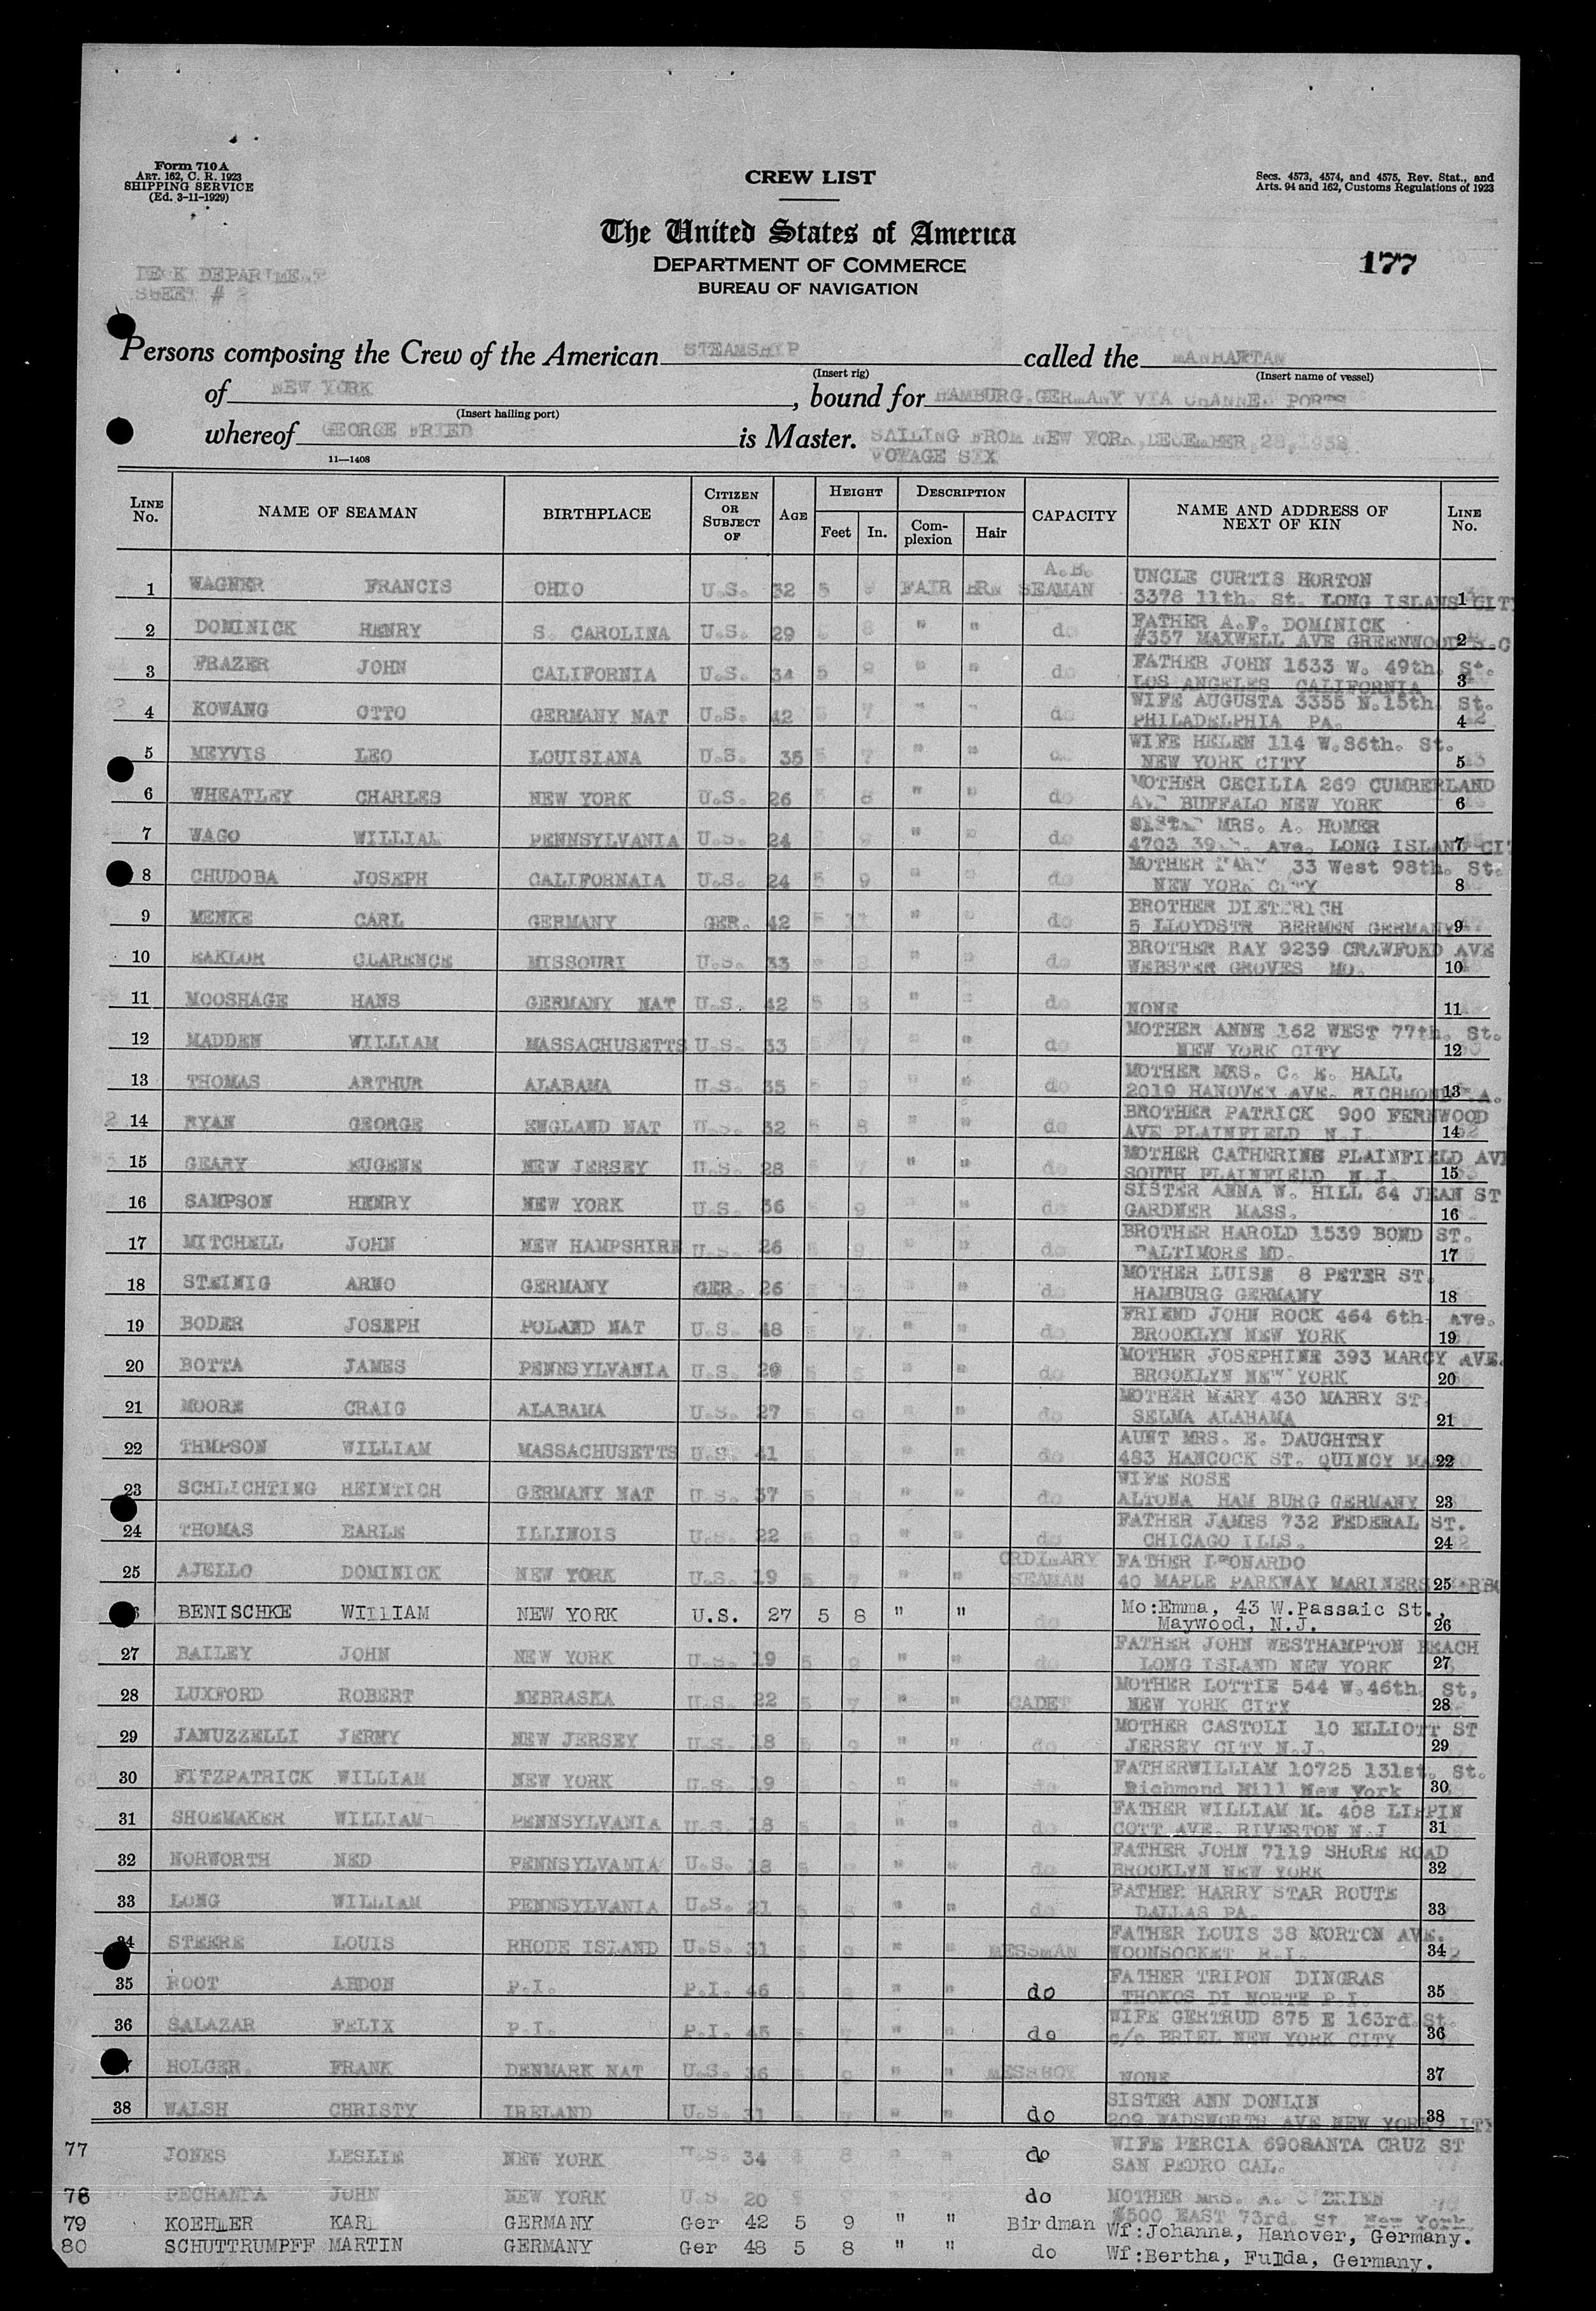 Form 710A
ART. 162, C. R. 1923
SHIPPING SERVICE
(Ed. 3-11-1929)
CREW LIST
Secs. 4573, 4574, and 4575, Rev. Stat., and
Arts. 94 and 162, Customs Regulations of 1923
The United States of America
DEPARTMENT OF COMMERCE
BUREAU OF NAVIGATION
177
DECK DEPARTMENT
SHEET # 2
Persons composing the Crew of the American STEAMSHIP called the MANHATTAN
(Insert rig) (Insert name of vessel)
of NEW YORK, bound for HAMBURG.GERMANY VIA CHANNEL PORTS
(Insert hailing port)
whereof GEORGE FRIED is Master. SAILING FROM NEW YORK,DECEMBER,28,1932.
11—1408
VOYAGE SIX
LINE No. NAME OF SEAMAN BIRTHPLACE CITIZEN OR SUBJECT OF AGE HEIGHT Feet In. DESCRIPTION Complexion Hair CAPACITY NAME AND ADDRESS OF NEXT OF KIN LINE No.
1 WAGNER FRANCIS OHIO U.S. 32 5 FAIR BRN A.B. SEAMAN UNCLE CURTIS HORTON 1
3378 11th. St. LONG ISLANS CITY
2 DOMINICK HENRY S. CAROLINA U.S. 29 8 " " do FATHER A.F. DOMINICK 2
#357 MAXWELL AVE GREENWOOD S.C
3 FRAZER JOHN CALIFORNIA U.S. 34 5 9 " " do FATHER JOHN 1533 W. 49th. St. 3
LOS ANGELES CALIFORNIA
4 KOWANG OTTO GERMANY NAT U.S. 42 5 7 " " do WIFE AUGUSTA 3355 N.15th. St. 4
PHILADELPHIA PA.
5 MEYVIS LEO LOUISIANA U.S. 35 5 7 " " WIFE HELEN 114 W.86th. St. 5
NEW YORK CITY
6 WHEATLEY CHARLES NEW YORK U.S. 26 5 8 " " do MOTHER CECILIA 269 CUMBERLAND 6
AVE BUFFALO NEW YORK
7 WAGO WILLIAM PENNSYLVANIA U.S. 24 " " do SISTER MRS. A. HOMER 7
4703 39 Ave. LONG ISLAND CIT
8 CHUDOBA JOSEPH CALIFORNAIA U.S. 24 5 9 " " do MOTHER MARY 33 West 98th. St. 8
NEW YORK CITY
9 MENKE CARL GERMANY GER. 42 5 11 " " do BROTHER DIETERICH 9
5 LLOYDSTR BERMEN GERMANY
10 CLARENCE MISSOURI U.S. 33 " " do BROTHER RAY 9239 CRAWFORD AVE 10
WEBSTER GROVES MO.
11 MOOSHAGE HANS GERMANY NAT U.S. 42 5 8 " " do NONE 11
12 MADDEN WILLIAM MASSACHUSETTS U.S. 33 7 " " do MOTHER ANNE 162 WEST 77th. St. 12
NEW YORK CITY
13 THOMAS ARTHUR ALABAMA U.S. 35 5 9 " " do MOTHER MRS. C. E. HALL 13
2019 HANOVER AVE. RICHMOND VA.
14 RYAN GEORGE ENGLAND NAT U.S. 32 5 8 " " do BROTHER PATRICK 900 FERNWOOD 14
AVE PLAINFIELD N.J.
15 GEARY EUGENE NEW JERSEY U.S. 28 7 " " do MOTHER CATHERINE PLAINFIELD AVE 15
SOUTH PLAINFIELD N.J.
16 SAMPSON HENRY NEW YORK U.S. 36 9 " " do SISTER ANNA W. HILL 64 JEAN ST 16
GARDNER MASS.
17 MITCHELL JOHN NEW HAMPSHIRE U.S. 26 9 " " do BROTHER HAROLD 1539 BOND ST. 17
BALTIMORE MD.
18 STEINIG ARNO GERMANY GER. 26 " " do MOTHER LUISE 8 PETER ST. 18
HAMBURG GERMANY
19 BODER JOSEPH POLAND NAT U.S. 48 5 7 " " do FRIEND JOHN ROCK 464 6th. Ave. 19
BROOKLYN NEW YORK
20 BOTTA JAMES PENNSYLVANIA U.S. 20 5 5 " " do MOTHER JOSEPHINE 393 MARCY AVE. 20
BROOKLYN NEW YORK
21 MOORE CRAIG ALABAMA U.S. 27 5 9 " " do MOTHER MARY 430 MABRY ST. 21
SELMA ALABAMA
22 THMPSON WILLIAM MASSACHUSETTS U.S. 41 " " do AUNT MRS. E. DAUGHTRY 22
483 HANCOCK ST. QUINCY MASS
23 SCHLICHTING HEINTICH GERMANY NAT U.S. 37 5 8 " " do WIFE ROSE 23
ALTONA HAM BURG GERMANY
24 THOMAS EARLE ILLINOIS U.S. 22 9 " " do FATHER JAMES 732 FEDERAL ST. 24
CHICAGO ILLS.
25 AJELLO DOMINICK NEW YORK U.S. 19 5 7 " " ORDINARY SEAMAN FATHER LEONARDO 25
40 MAPLE PARKWAY MARINERS
BENISCHKE WILLIAM NEW YORK U.S. 27 5 8 " " do Mo:Emma, 43 W.Passaic St., 26
Maywood, N.J.
27 BAILEY JOHN NEW YORK U.S. 19 5 9 " " do FATHER JOHN WESTHAMPTON BEACH 27
LONG ISLAND NEW YORK
28 LUXFORD ROBERT NEBRASKA U.S. 22 5 7 " " CADET MOTHER LOTTIE 544 W.46th. St, 28
NEW YORK CITY
29 JANUZZELLI JERMY NEW JERSEY U.S. 18 5 9 " " do MOTHER CASTOLI 10 ELLIOTT ST 29
JERSEY CITY N.J.
30 FITZPATRICK WILLIAM NEW YORK U.S. 19 " " do FATHERWILLIAM 10725 131st. St. 30
Richmond Hill New York
31 SHOEMAKER WILLIAM PENNSYLVANIA U.S. 18 " " do FATHER WILLIAM M. 408 LIPPIN 31
COTT AVE. RIVERTON N.J
32 NORWORTH NED PENNSYLVANIA U.S. 18 " " do FATHER JOHN 7119 SHORE ROAD 32
BROOKLYN NEW YORK
33 LONG WILLIAM PENNSYLVANIA U.S. 21 " " do FATHER HARRY STAR ROUTE 33
DALLAS PA.
34 STEERE LOUIS RHODE ISLAND U.S. 31 " " MESSMAN FATHER LOUIS 38 MORTON AVE. 34
WOONSOCKET R.I.
35 ROOT ABDON P.I. P.I. 46 " " do FATHER TRIPON DINGRAS 35
THOKOS DI NORTE P.I.
36 SALAZAR FELIX P.I. P.I. 45 " " do WIFE GERTRUD 875 E 163rd.St. 36
c/o BRIEL NEW YORK CITY
HOLGER. FRANK DENMARK NAT U.S. 36 9 " " MESSBOY NONE 37
38 WALSH CHRISTY IRELAND U.S. 31 " " do SISTER ANN DONLIN 38
209 WADSWORTH AVE NEW YORK CITY
77 JONES LESLIE NEW YORK U.S. 34 8 " " do WIFE PERCIA 690SANTA CRUZ ST
SAN PEDRO CAL.
78 JOHN NEW YORK U.S. 20 do MOTHER MRS. A. O'BRIEN
#500 EAST 73rd. St. New York.
79 KOEHLER KARL GERMANY Ger 42 5 9 " " Birdman Wf:Johanna, Hanover, Germany.
80 SCHUTTRUMPFF MARTIN GERMANY Ger 48 5 8 " " do Wf:Bertha, Fulda, Germany.